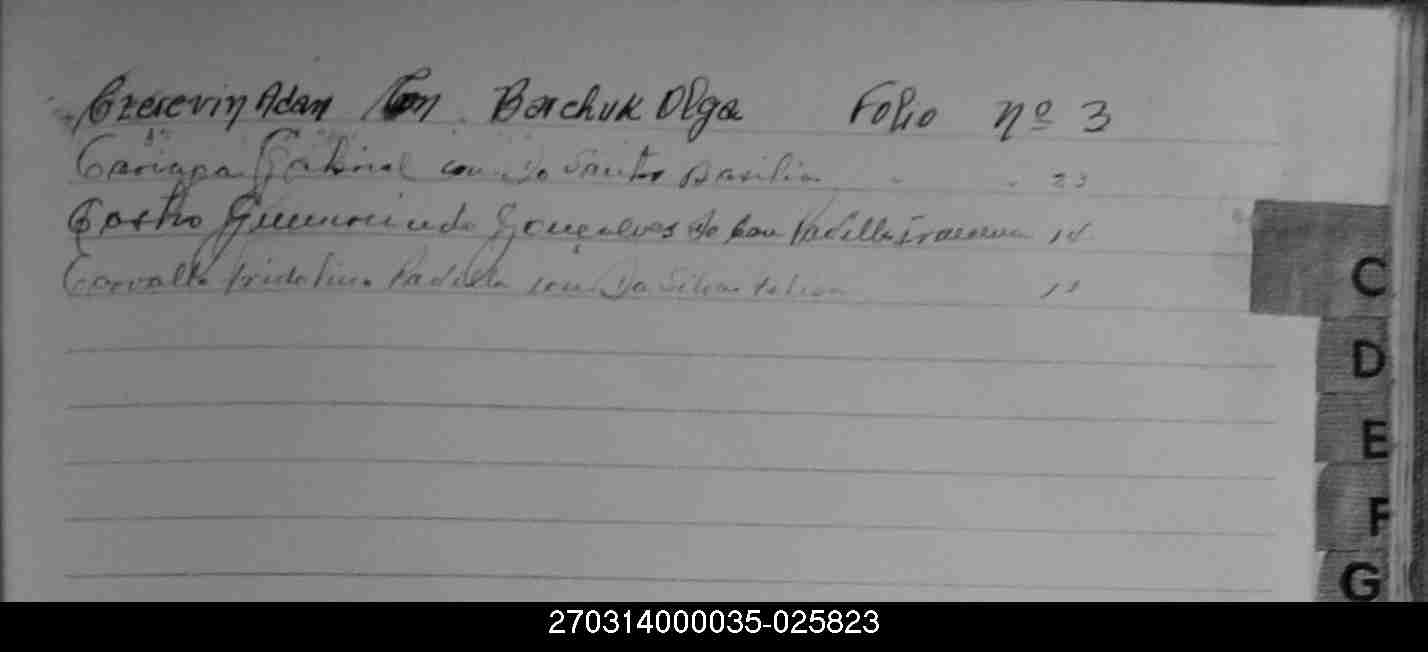 Czerevin Adan Con Borchuk Olga Folio nº 3
Cariaga Gabriel con Do Santos Basilia " " 23
Castro Gumercindo Gonçalves de con Padilla
Carvalho Padilla con Da Silva
C
D
E
F
G
270314000035-025823